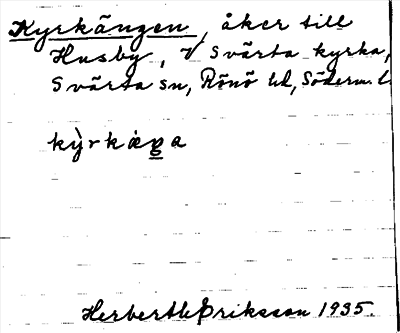 Kyrkängen, åker till
Husby, V Svärta kyrka,
Svärta sn, Rönö hd, Söderm. l
Herberth Eriksson 1935.